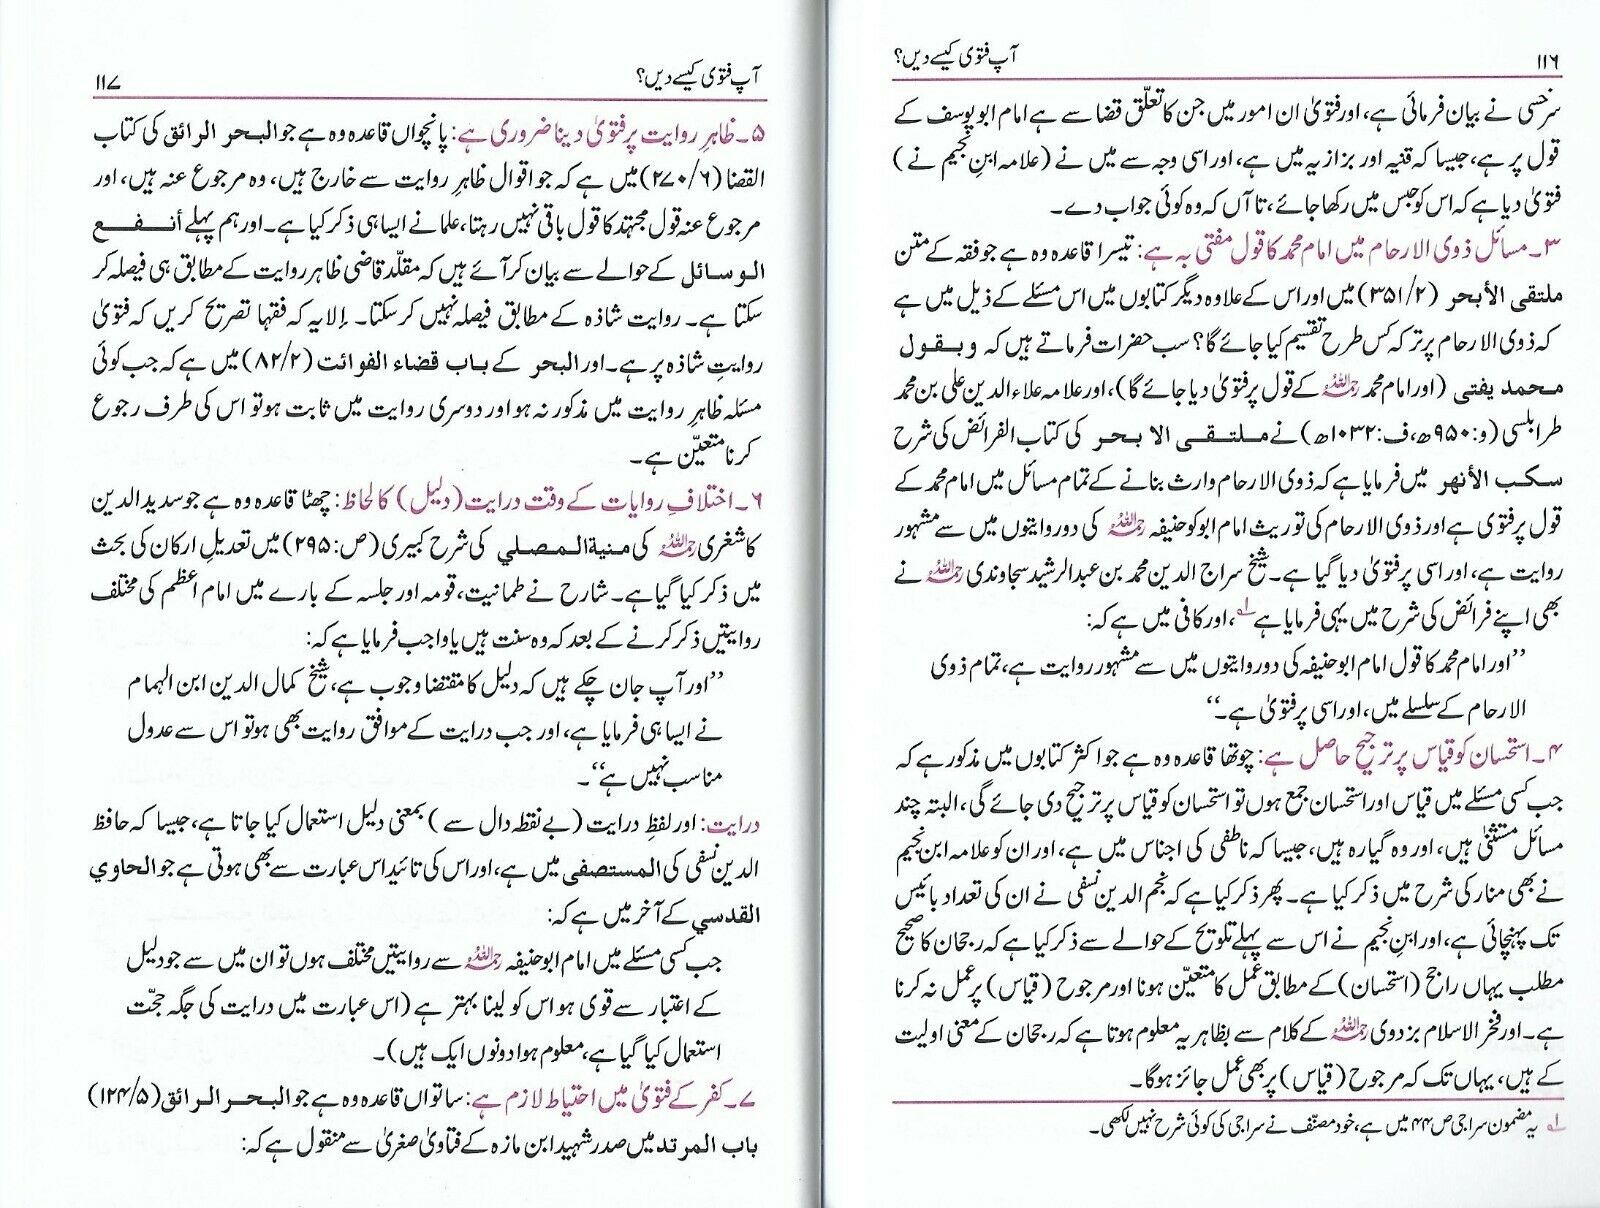 ۱۱۶ آپ فتویٰ کیسے دیں؟
سرخسی نے بیان فرمائی ہے، اور فتویٰ ان امور میں جن کا تعلّق قضا سے ہے امام ابو یوسف کے
قول پر ہے، جیسا کہ قنیہ اور بزازیہ میں ہے، اور اسی وجہ سے میں نے (علامہ ابنِ نجیم نے)
فتویٰ دیا ہے کہ اس کو حبس میں رکھا جائے، تا آں کہ وہ کوئی جواب دے۔
۳۔ مسائل ذوی الارحام میں امام محمد کا قول مفتی بہ ہے: تیسرا قاعدہ وہ ہے جو فقہ کے متن
ملتقی الأبحر (۳۵۱/۲) میں اور اس کے علاوہ دیگر کتابوں میں اس مسئلے کے ذیل میں ہے
کہ ذوی الارحام پر ترکہ کس طرح تقسیم کیا جائے گا؟ سب حضرات فرماتے ہیں کہ وبقول
محمد یفتی (اور امام محمد رحمہ اللہ کے قول پر فتویٰ دیا جائے گا)، اور علامہ علاء الدین علی بن محمد
طرابلسی (و: ۹۵۰ھ، ف: ۱۰۳۲ھ) نے ملتقی الابحر کی کتاب الفرائض کی شرح
سکب الأنهر میں فرمایا ہے کہ ذوی الارحام وارث بنانے کے تمام مسائل میں امام محمد کے
قول پر فتویٰ ہے اور ذوی الارحام کی توریث امام ابو کو حنیفہ رحمہ اللہ کی دو روایتوں میں سے مشہور
روایت ہے، اور اسی پر فتویٰ دیا گیا ہے۔ شیخ سراج الدین محمد بن عبدالرشید سجاوندی رحمہ اللہ نے
بھی اپنے فرائض کی شرح میں یہی فرمایا ہے ۱، اور کافی میں ہے کہ:
’’اور امام محمد کا قول امام ابو حنیفہ کی دو روایتوں میں سے مشہور روایت ہے، تمام ذوی
الارحام کے سلسلے میں، اور اسی پر فتویٰ ہے۔‘‘
۴۔ استحسان کو قیاس پر ترجیح حاصل ہے: چوتھا قاعدہ وہ ہے جو اکثر کتابوں میں مذکور ہے کہ
جب کسی مسئلے میں قیاس اور استحسان جمع ہوں تو استحسان کو قیاس پر ترجیح دی جائے گی، البتہ چند
مسائل مستثنیٰ ہیں، اور وہ گیارہ ہیں، جیسا کہ ناطفی کی اجناس میں ہے، اور ان کو علامہ ابن نجیم
نے بھی منار کی شرح میں ذکر کیا ہے۔ پھر ذکر کیا ہے کہ نجم الدین نسفی نے ان کی تعداد بائیس
تک پہنچائی ہے، اور ابنِ نجیم نے اس سے پہلے تلویح کے حوالے سے ذکر کیا ہے کہ رجحان کا صحیح
مطلب یہاں راجح (استحسان) کے مطابق عمل کا متعیّن ہونا اور مرجوح (قیاس) پر عمل نہ کرنا
ہے۔ اور فخر الاسلام بزدوی رحمہ اللہ کے کلام سے بظاہر یہ معلوم ہوتا ہے کہ رجحان کے معنی اولیت
کے ہیں، یہاں تک کہ مرجوح (قیاس) پر بھی عمل جائز ہوگا۔
۱ یہ مضمون سراجی ص ۴۴ میں ہے، خود مصنّف نے سراجی کی کوئی شرح نہیں لکھی۔
آپ فتویٰ کیسے دیں؟ ۱۱۷
۵۔ ظاہرِ روایت پر فتویٰ دینا ضروری ہے: پانچواں قاعدہ وہ ہے جو البحر الرائق کی کتاب
القضا (۲۷۰/۶) میں ہے کہ جو اقوال ظاہرِ روایت سے خارج ہیں، وہ مرجوع عنہ ہیں، اور
مرجوع عنہ قول مجتہد کا قول باقی نہیں رہتا، علما نے ایسا ہی ذکر کیا ہے۔ اور ہم پہلے أنفع
الوسائل کے حوالے سے بیان کر آئے ہیں کہ مقلّد قاضی ظاہر روایت کے مطابق ہی فیصلہ کر
سکتا ہے۔ روایت شاذہ کے مطابق فیصلہ نہیں کرسکتا۔ اِلا یہ کہ فقہا تصریح کریں کہ فتویٰ
روایتِ شاذہ پر ہے۔ اور البحر کے باب قضاء الفوائت (۸۲/۲) میں ہے کہ جب کوئی
مسئلہ ظاہرِ روایت میں مذکور نہ ہو اور دوسری روایت میں ثابت ہو تو اس کی طرف رجوع
کرنا متعیّن ہے۔
۶۔ اختلافِ روایات کے وقت درایت (دلیل) کا لحاظ: چھٹا قاعدہ وہ ہے جو سدید الدین
کاشغری رحمہ اللہ کی منیة المصلي کی شرح کبیری (ص: ۲۹۵) میں تعدیلِ ارکان کی بحث
میں ذکر کیا گیا ہے۔ شارح نے طمانیت، قومہ اور جلسہ کے بارے میں امام اعظم کی مختلف
روایتیں ذکر کرنے کے بعد کہ وہ سنت ہیں یا واجب فرمایا ہے کہ:
’’اور آپ جان چکے ہیں کہ دلیل کا مقتضا وجوب ہے، شیخ کمال الدین ابن الہمام
نے ایسا ہی فرمایا ہے، اور جب درایت کے موافق روایت بھی ہو تو اس سے عدول
مناسب نہیں ہے‘‘۔
درایت: اور لفظِ درایت (بے نقطہ دال سے) بمعنی دلیل استعمال کیا جاتا ہے، جیسا کہ حافظ
الدین نسفی کی المستصفی میں ہے، اور اس کی تائید اس عبارت سے بھی ہوتی ہے جو الحاوي
القدسي کے آخر میں ہے کہ:
جب کسی مسئلے میں امام ابو حنیفہ رحمہ اللہ سے روایتیں مختلف ہوں تو ان میں سے جو دلیل
کے اعتبار سے قوی ہو اس کو لینا بہتر ہے (اس عبارت میں درایت کی جگہ حجّت
استعمال کیا گیا ہے، معلوم ہوا دونوں ایک ہیں)۔
۷۔ کفر کے فتویٰ میں احتیاط لازم ہے: ساتواں قاعدہ وہ ہے جو البحر الرائق (۱۲۴/۵)
باب المرتد میں صدر شہید ابن مازہ کے فتاویٰ صغریٰ سے منقول ہے کہ: